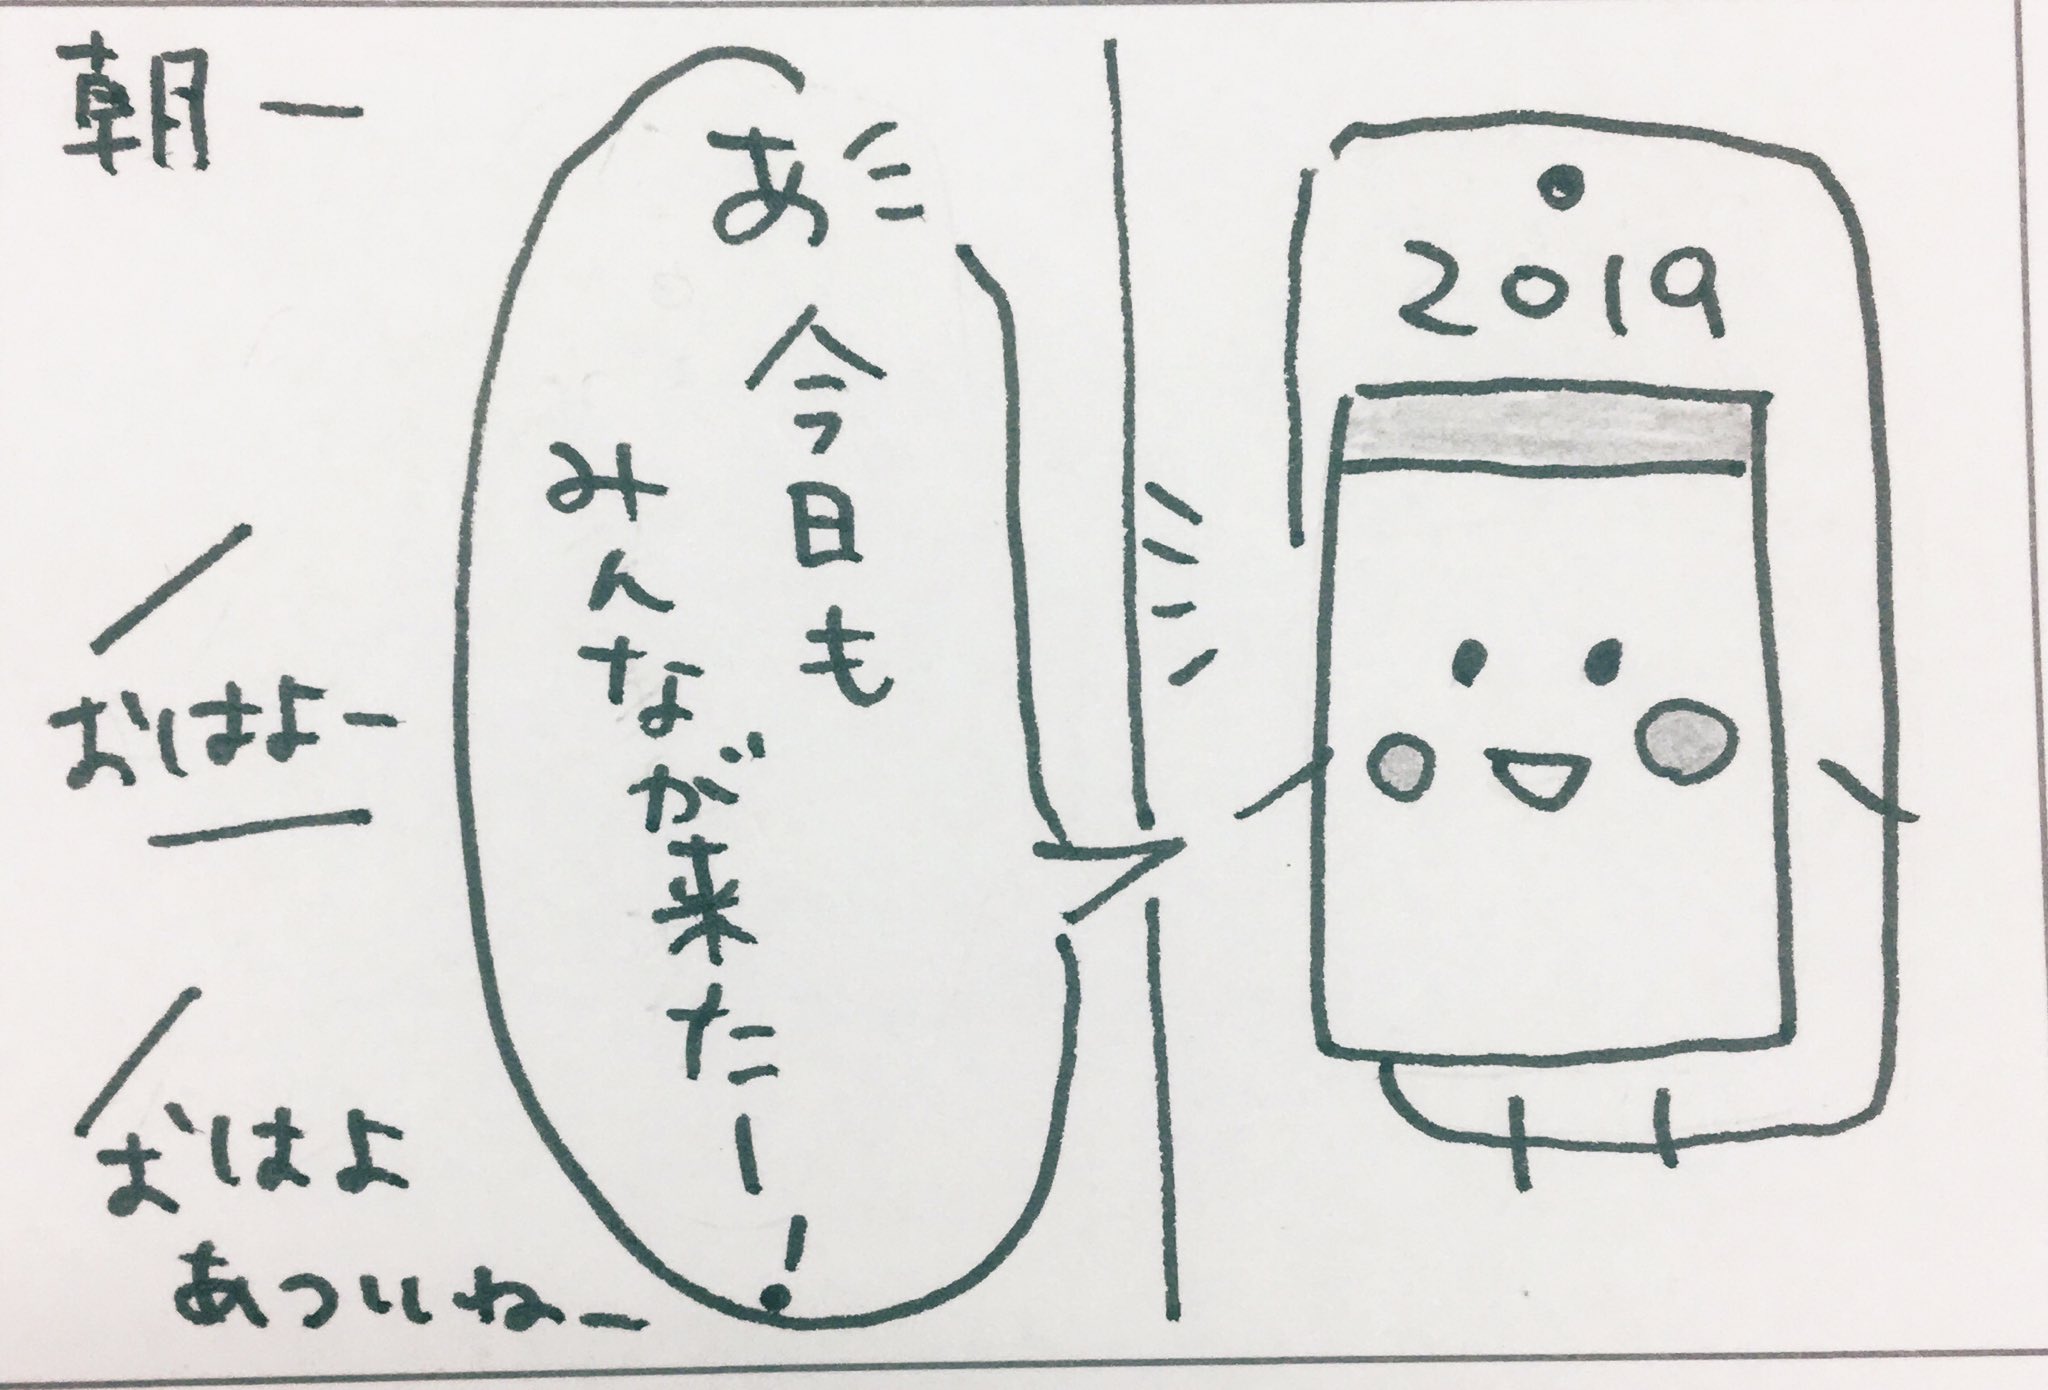 朝一
2019
あ
今日も
みんなが来たー!
おはよー
おはよ
あついねー